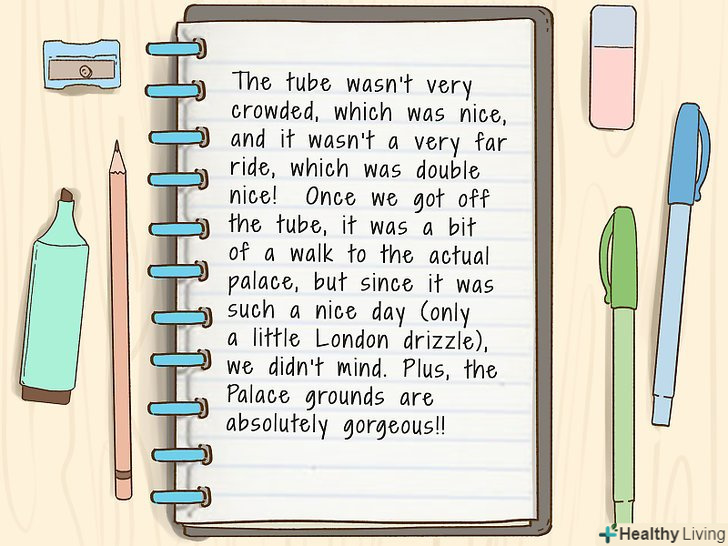 The tube wasn't very
crowded, which was nice,
and it wasn't a very far
ride, which was double
nice! Once we got off
the tube, it was a bit
of a walk to the actual
palace, but since it was
such a nice day (only
a little London drizzle),
we didn't mind. Plus, the
Palace grounds are
absolutely gorgeous!!
Healthy Living